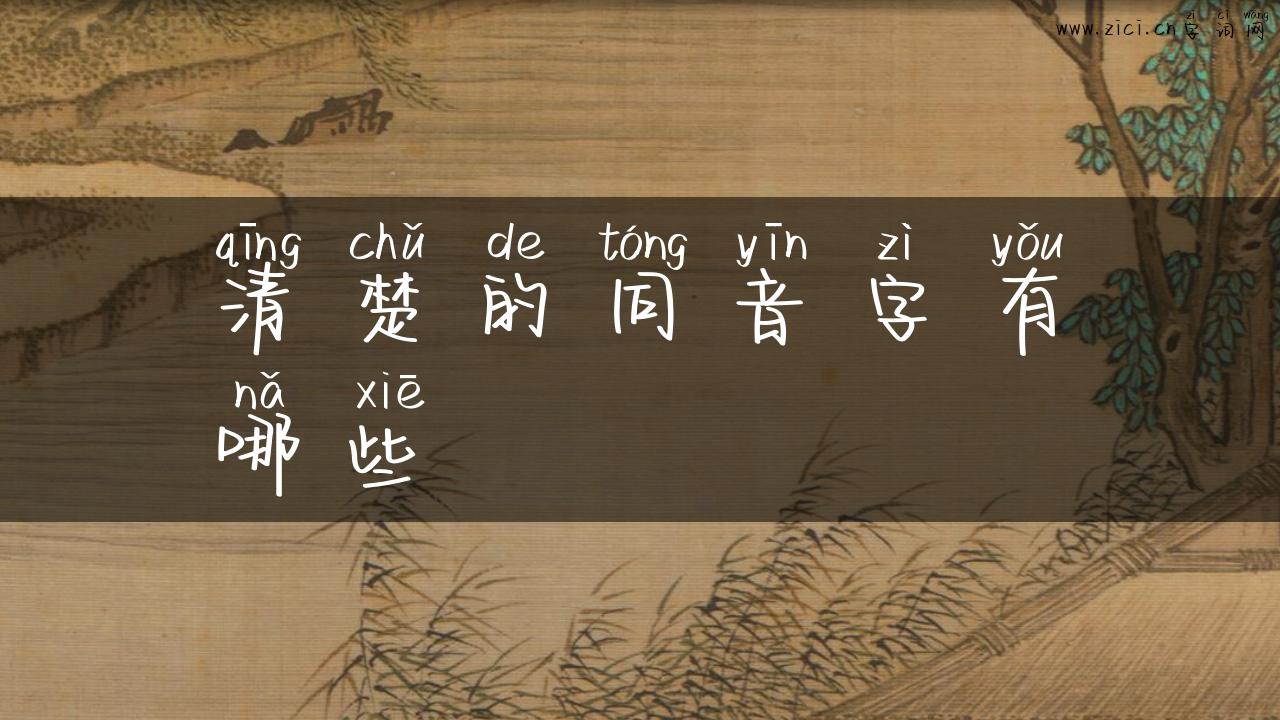 zì cí wǎng
www.zici.cn字词网
qīng chǔ de tóng yīn zì yǒu
清楚的同音字有
nǎ xiē
哪些